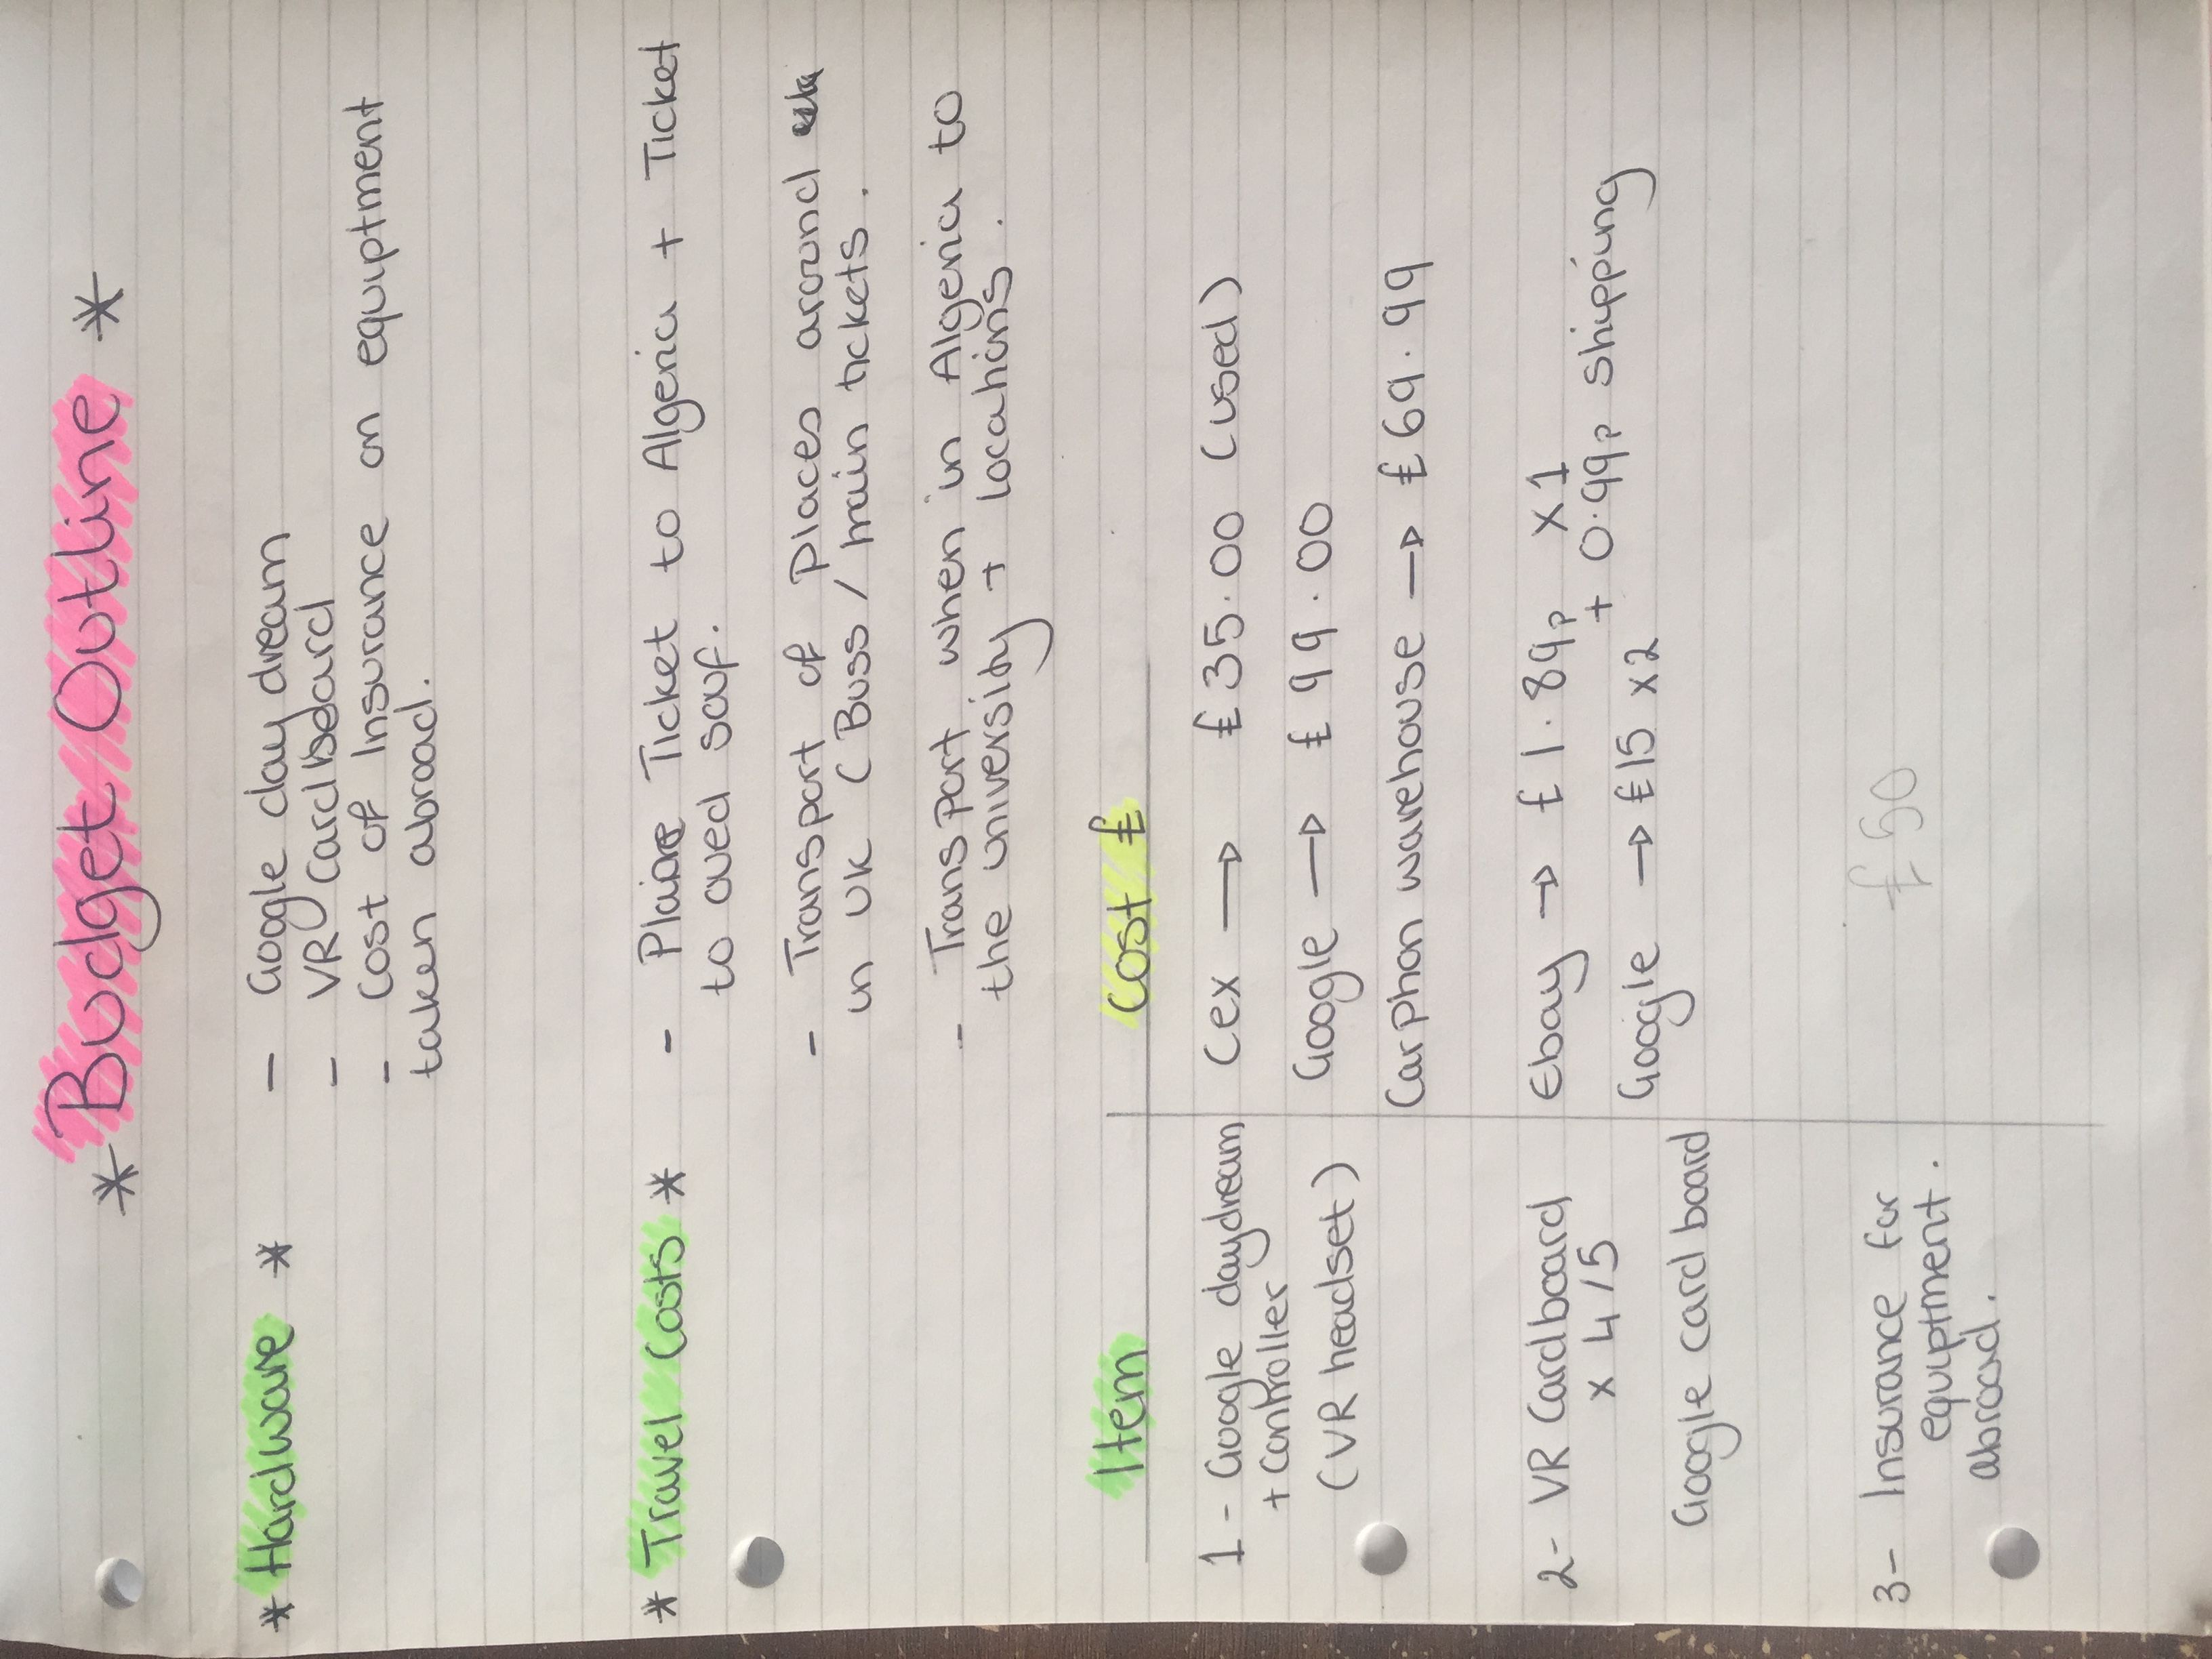 * Budget Outline *
* Hardware *
- Google day dream
- VR Cardboard
- Cost of Insurance on equiptment
taken abroad.
* Travel Costs *
- Plane Ticket to Algeria + Ticket
to oued souf.
- Transport of Places around
in UK (Buss / train tickets.
- Transport when in Algeria to
the university + locations.
Item Cost £
1 - Google daydream Cex → £35.00 (used)
+ Controller
(VR headset) Google → £99.00
Carphon warehouse → £69.99
2- VR Cardboard Ebay → £1.89p x1
x 4/5 + 0.99p shipping
Google cardboard Google → £15 x2
3- Insurance for £50
equiptment.
abroad.